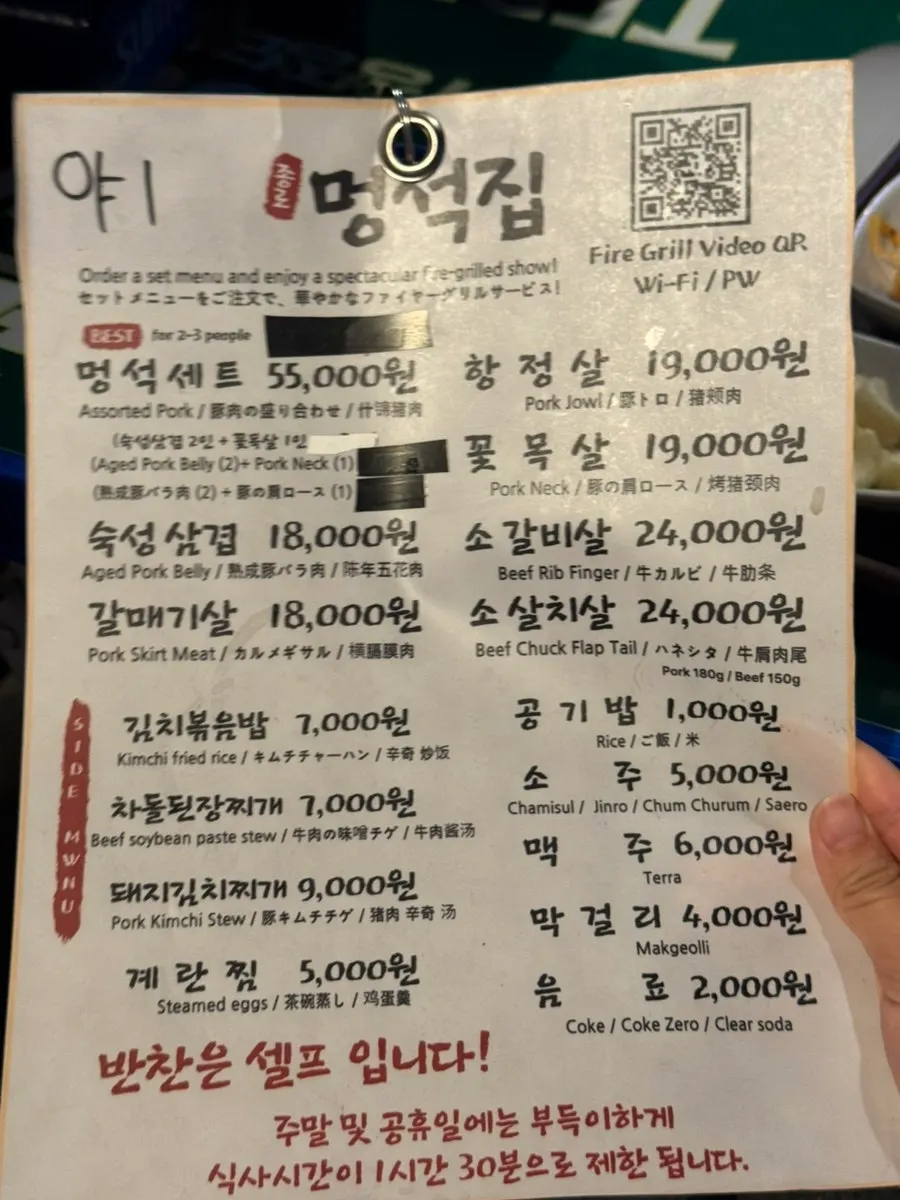 야 1
신촌
멍석집
Fire Grill Video QR
Wi-Fi / PW
Order a set menu and enjoy a spectacular fire-grilled show!
セットメニューをご注文で、華やかなファイヤーグリルサービス!
BEST for 2-3 people
멍석세트 55,000원
Assorted Pork / 豚肉の盛り合わせ / 什锦猪肉
(숙성삼겹 2인 + 꽃목살 1인
(Aged Pork Belly (2)+ Pork Neck (1)
(熟成豚バラ肉 (2) + 豚の肩ロース (1)
숙성삼겹 18,000원
Aged Pork Belly / 熟成豚バラ肉 / 陈年五花肉
갈매기살 18,000원
Pork Skirt Meat / カルメギサル / 横膈膜肉
항정살 19,000원
Pork Jowl / 豚トロ / 猪颊肉
꽃목살 19,000원
Pork Neck / 豚の肩ロース / 烤猪颈肉
소갈비살 24,000원
Beef Rib Finger / 牛カルビ / 牛肋条
소살치살 24,000원
Beef Chuck Flap Tail / ハネシタ / 牛肩肉尾
Pork 180g / Beef 150g
SIDE MWNU
김치볶음밥 7,000원
Kimchi fried rice / キムチチャーハン / 辛奇 炒饭
차돌된장찌개 7,000원
Beef soybean paste stew / 牛肉の味噌チゲ / 牛肉酱汤
돼지김치찌개 9,000원
Pork Kimchi Stew / 豚キムチチゲ / 猪肉 辛奇 汤
계란찜 5,000원
Steamed eggs / 茶碗蒸し / 鸡蛋羹
공기밥 1,000원
Rice / ご飯 / 米
소주 5,000원
Chamisul / Jinro / Chum Churum / Saero
맥주 6,000원
Terra
막걸리 4,000원
Makgeolli
음료 2,000원
Coke / Coke Zero / Clear soda
반찬은 셀프 입니다!
주말 및 공휴일에는 부득이하게
식사시간이 1시간 30분으로 제한 됩니다.